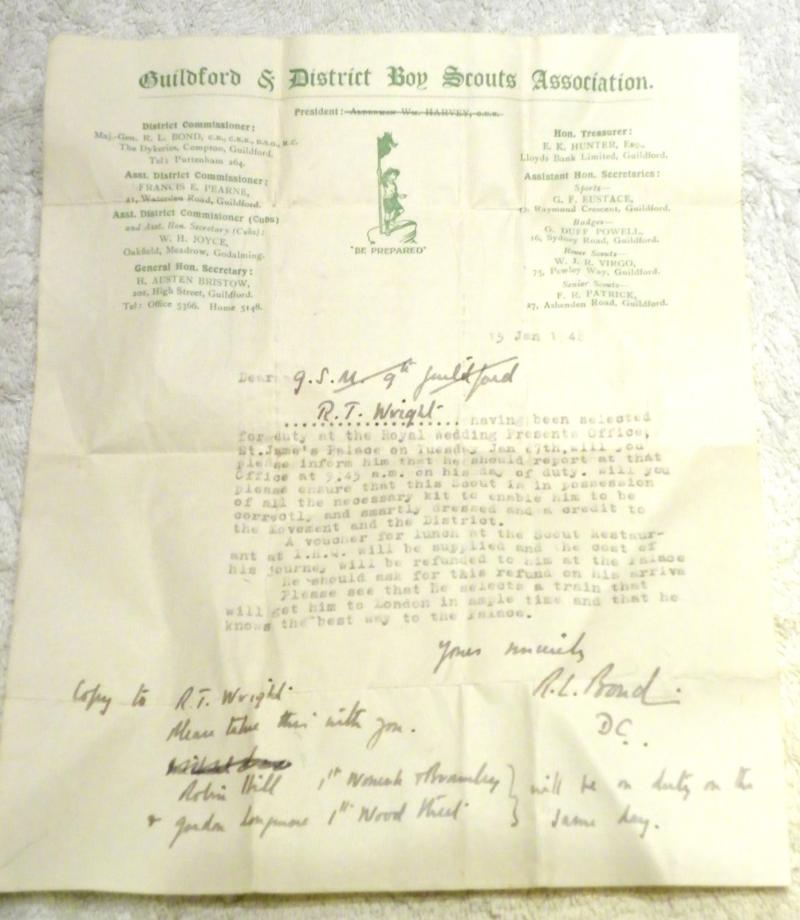 Guildford & District Boy Scouts Association.
President: Alderman Wm. HARVEY, O.B.E.
District Commissioner:
Maj.-Gen. R. L. BOND, C.B., C.B.E., D.S.O., M.C.
The Dykeries, Compton, Guildford.
Tel: Puttenham 264.
Asst. District Commissioner:
FRANCIS E. PEARNE,
21, Waterden Road, Guildford.
Asst. District Commisioner (Cubs)
and Asst. Hon. Secretary (Cubs):
W. H. JOYCE,
Oakfield, Meadrow, Godalming.
General Hon. Secretary:
H. AUSTEN BRISTOW,
202, High Street, Guildford.
Tel: Office 5366. Home 5148.
"BE PREPARED"
Hon. Treasurer:
E. K. HUNTER, Esq.,
Lloyds Bank Limited, Guildford.
Assistant Hon. Secretaries:
Sports—
G. F. EUSTACE,
Raymond Crescent, Guildford.
Badges—
G. DUFF POWELL,
16, Sydney Road, Guildford.
Rover Scouts—
W. J. R. VIRGO,
75, Pewley Way, Guildford.
Senior Scouts—
F. R. PATRICK,
27, Ashenden Road, Guildford.
Jan 1 48
Dear G.S.M. 9th Guildford
R.T. Wright having been selected
for duty at the Royal Wedding Presents Office,
St.Jame's Palace on Tuesday Jan 27th,will you
please inform him that he should report at that
Office at 9.45 a.m. on his day of duty. Will you
please ensure that this Scout is in possession
of all the necessary kit to enable him to be
correctly, and smartly dressed and a credit to
the Movement and the District.
A voucher for lunch at the Scout Restaur-
ant at I.H.Q. will be supplied and the cost of
his journey will be refunded to him at the Palace
He should ask for this refund on his arriva
Please see that he selects a train that
will get him to London in ample time and that he
knows the best way to the Palace.
Yours sincerely
R.L. Bond.
D.C.
Copy to R.T. Wright.
Please take this with you.
Robin Hill 1st Wonersh & Bramley } will be on duty on the
& Gordon Longmore 1st Wood Street } same day.